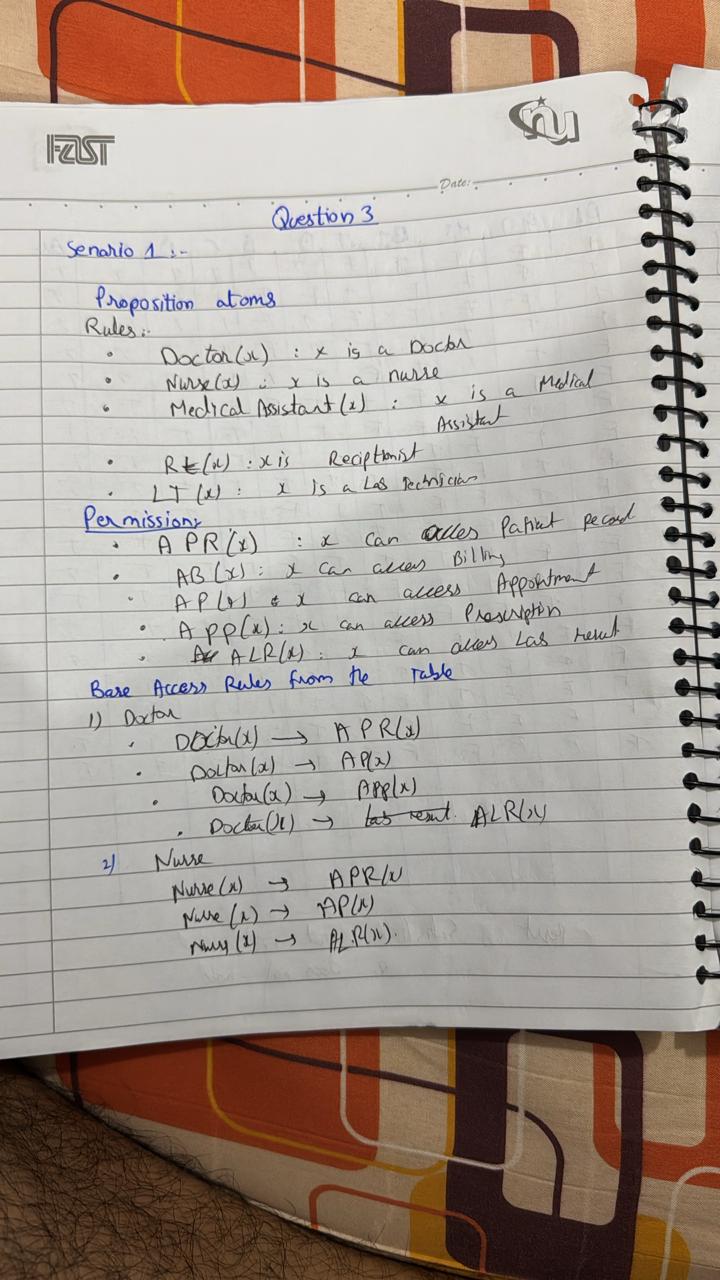 FAST
nu
Date:
Question 3
Senario 1 :-
Proposition atoms
Rules:-
• Doctor(x) : x is a Doctor
• Nurse(x) : x is a nurse
• Medical Assistant(x) : x is a Medical
Assistant
• Rt(x) : x is Reciptionist
• LT(x) : x is a Lab Technician
Permission:
• APR(x) : x can acces Patient Record
• AB(x) : x can access Billing
• AP(x) : x can access Appointment
• App(x) : x can access Prescription
• ALR(x) : x can access Lab result
Base Access Rules from the Table
1) Doctor
• Doctor(x) → APR(x)
• Doctor(x) → AP(x)
• Doctor(x) → App(x)
• Doctor(x) → lab result ALR(x)
2) Nurse
Nurse(x) → APR(x)
Nurse(x) → AP(x)
Nurs(x) → ALR(x).